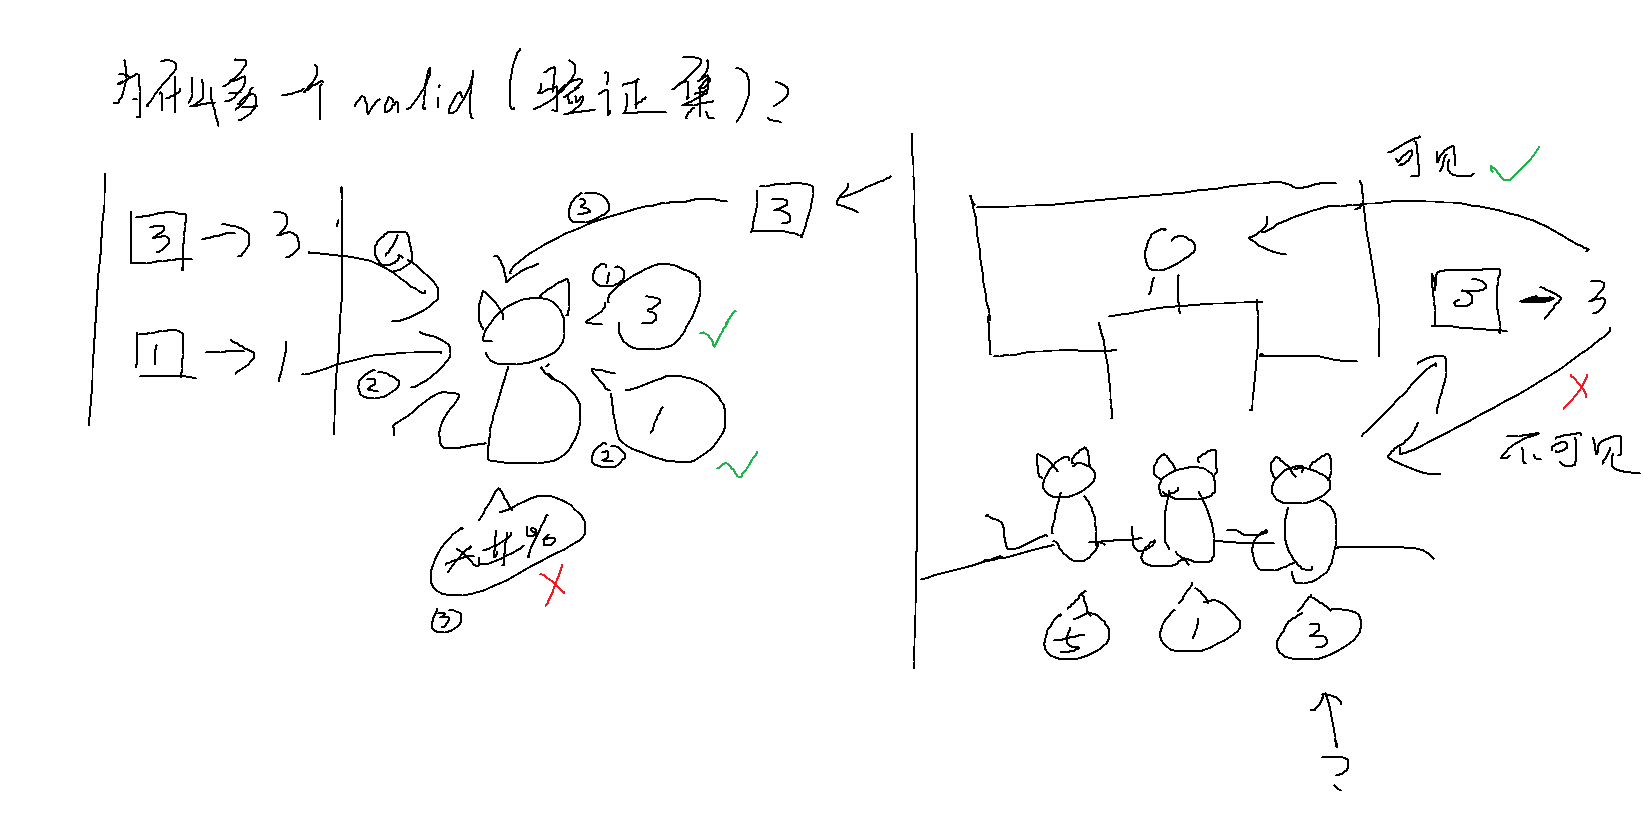 为什么多一个valid(验证集)?
3 → 3
1 → 1
①
②
③
3
① 3
② 1
*#%
③
可见
3 → 3
不可见
5 1 3
?